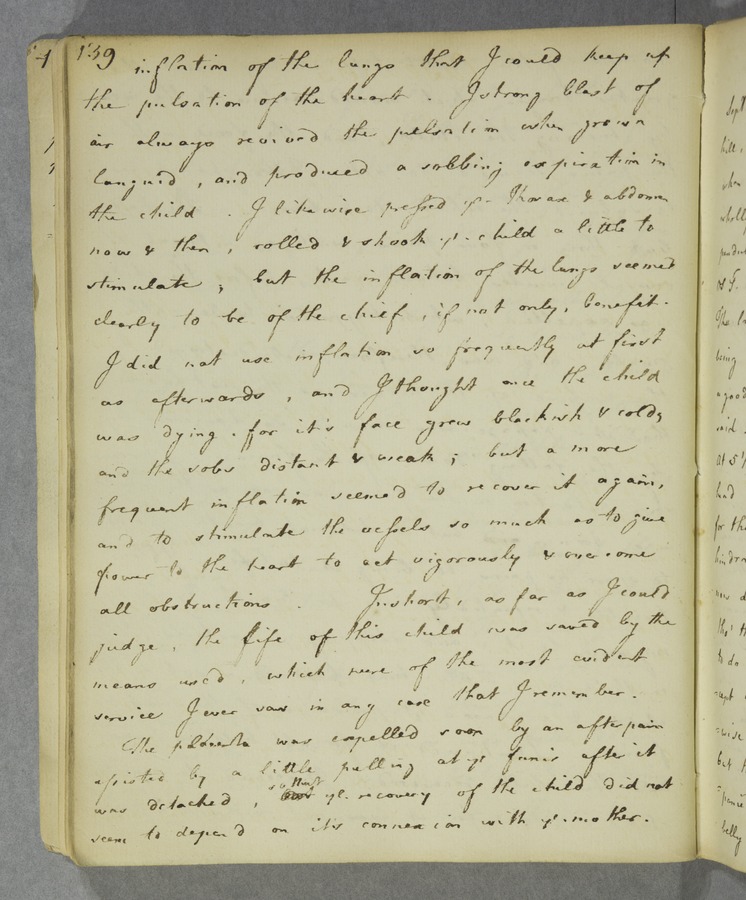 159
inflation of the lungs that I could keep up
the pulsation of the heart. A strong blast of
air always revived the pulsation when grown
languid, and produced a sobbing expiration in
the child. I likewise pressed ye. thorax & abdomen
now & then, rolled & shook ye. child a little to
stimulate; but the inflation of the lungs seemed
clearly to be of the chief, if not only, benefit.
I did not use inflation so frequently at first
as afterwards, and I thought once the child
was dying. for it's face grew blackish & cold,
and the sobs distant & weak; but a more
frequent inflation seemed to recover it again,
and to stimulate the vessels so much as to give
power to the heart to act vigorously & overcome
all obstructions. In short, as far as I could
judge, the life of this child was saved by the
means used, which were of the most evident
service I ever saw in any case that I remember.
The placenta was expelled soon by an after pain
assisted by a little pulling at ye funis after it
was detached, so that ye. recovery of the child did not
seem to depend on it's connexion with ye. mother.